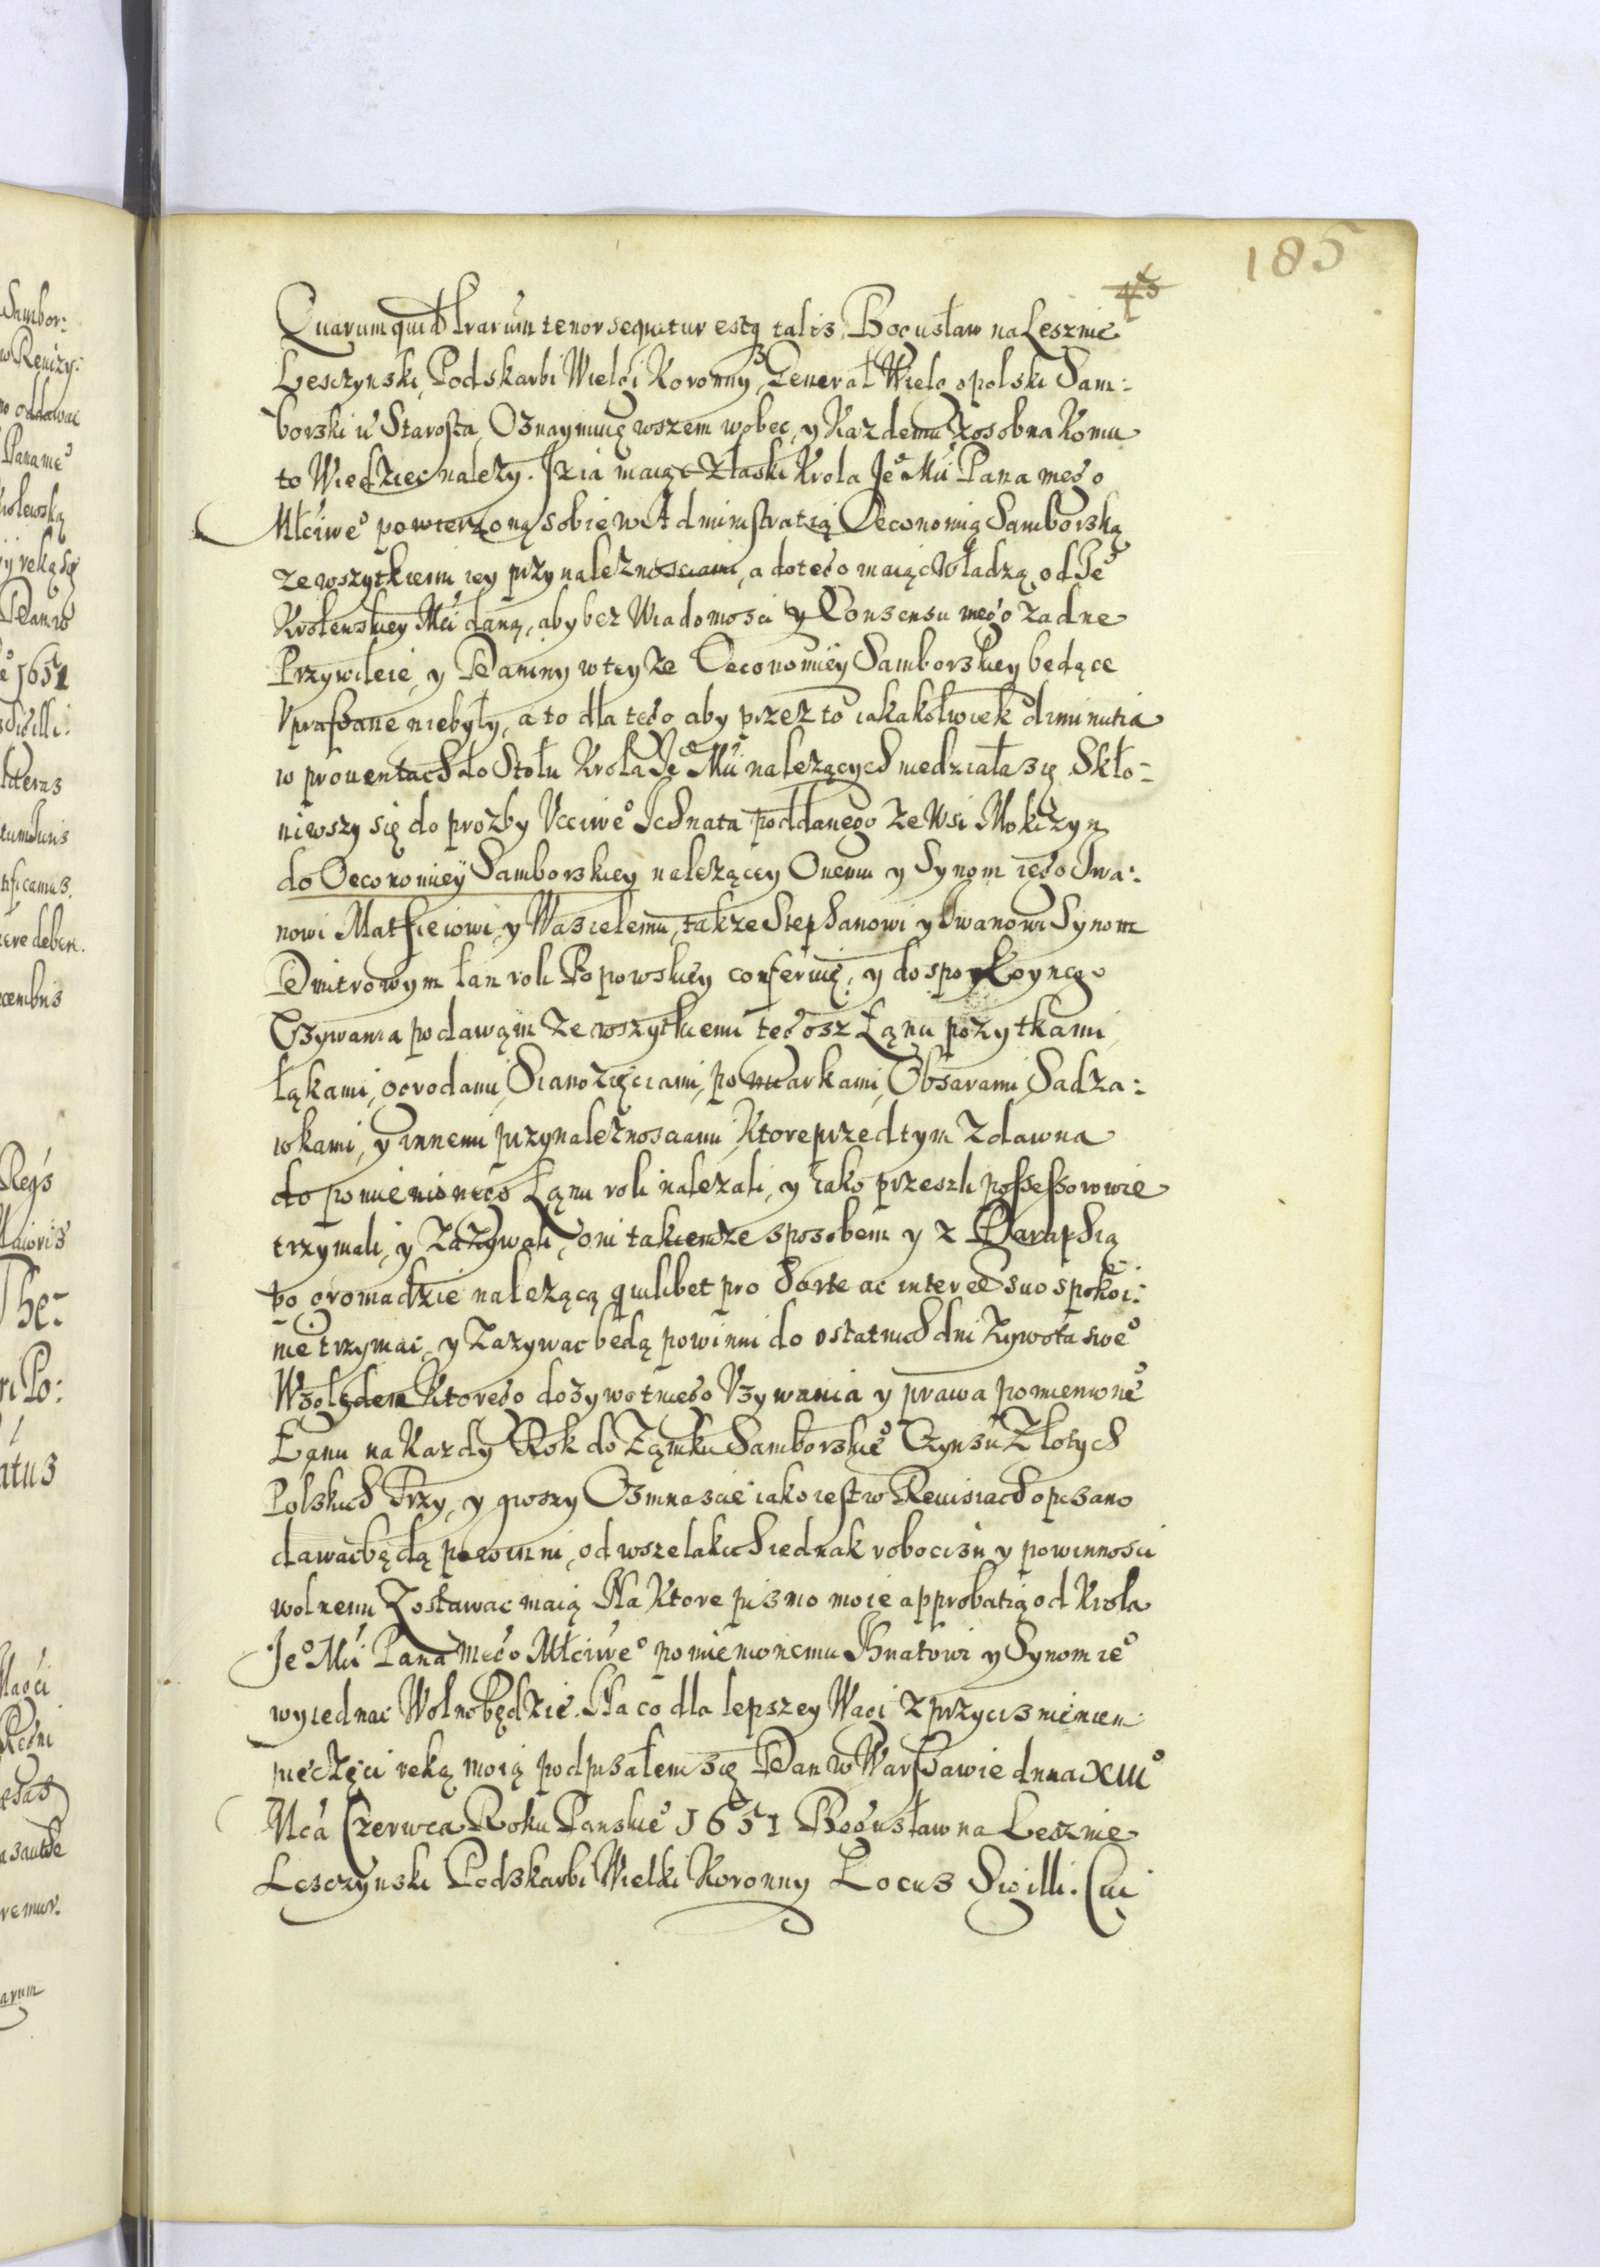 185
Quarum quid. Lrarum tenor sequitur estq talis. Bogusław na Lesznie
Lesczynski, Podskarbi Wielgi Koronny, Generał Wielgopolski Sam:
borski ii Starosta, Oznaymuię wszem wobec, y Kazdemu zosobna Komu
to Wiedziec nalezy. Jz ia maiąc z łaski Krola Jeº Mći Pana mego
Młciweº powierzoną sobie w Administratią Oeconomią Samborską
ze wszytkiemi iey przynaleznosciami, a do tego maiąc Władzą od Jeº
Krolewskiey Mći daną, aby bez Wiadomosci y Consensu mego zadne
Przywileie, y Daniny w teyze Oeconomiey Samborskiey będące
Vpraszane niebyły, a to dla tego aby przez to iakakolwiek diminutia
w prouentach do Stołu Krola Jeº Mći nalezących niedziała się. Skło-
niwszy się do prozby Vcciweº Jchnata poddanego ze Wsi Mokrzyn
do Oeconomiey Samborskiey nalezącey Onemu y Synom iego Iwa:
nowi Mathieiowi, y Wasielemu, takze Stephanowi y Iwanowi Synom
Dmitrowym łan roli Popowskiey conferuię, y do spokoynego
Vzywania podawam ze wszytkiemi tegosz Łanu pozytkami
łąkami, ogrodami, Sianozęciami, pomiarkami, Obszarami, Sadza:
wkami, y innemi przynaleznosciami, Ktore przedtym z dawna
do pomienionego Łanu roli nalezali, y iako przeszli possessorowie
trzymali, y zazywali, oni takiemze sposobem y z Paraphią
po gromadzie nalezącą quilibet pro sorte ac interee suo spokoi:
nie trzymac, y zazywac będą powinni do ostatnich dni zywota sweº
Względem Ktorego dozywotniego Vzywania y prawa pomienioneº
Łanu na Kazdy Rok do Zamku Samborskieº Czynszu Złotych
Polskich Trzy, y groszy Osmnascie iako iest w Reuisiach opisano
dawac będą powinni, od wszelakich iednak robocizn y powinnosci
wolnemi zostawac maią. Na Ktore pismo moie approbatią od Krola
Jeº Mći Pana mego Młciweº pomienionemu Ihnatowi y Synom ieº
wyiednac Wolno będzie. Na co dla lepszey Wagi z przycisnieniem
pieczęci ręką moią podpisałem się. Dan w Warszawie dnia XIIIº
Mća Czerwca Roku Panskieº 1651 Bogusław na Lesznie
Lesczynski Podskarbi Wielki Koronny Locus Sigilli. Cui